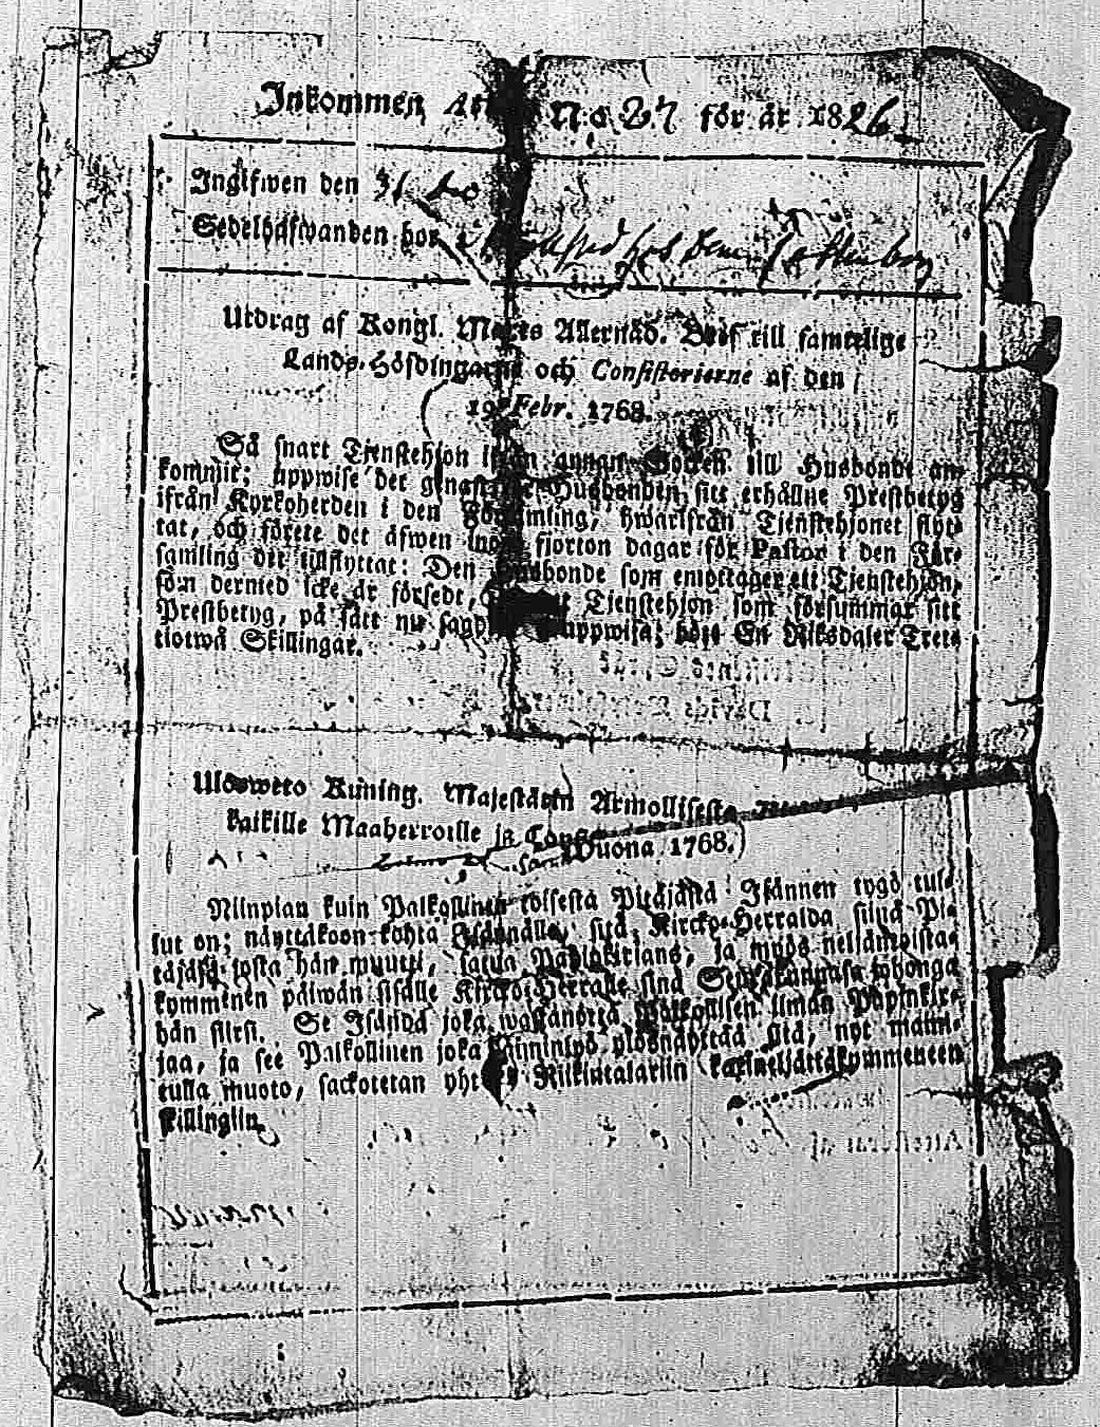 Inkommen N:o 27 för år 1826
Ingifwen den 31
Sedelhafwanden hos
Utdrag af Kongl. Maj:ts Allernåd. Bref till samtelige
Lands-Höfdingarne och Consistorierne af den
19 Febr. 1768.
Så snart Tjenstehjon ifrån annan Socken till Husbonde an-
kommit; uppwise det genast för Husbonden sitt erhållne Prestbetyg
ifrån Kyrkoherden i den Församling, hwarifrån Tjenstehjonet flyt-
tat, och förete det äfwen inom fjorton dagar för Pastor i den För-
samling dit tillflyttat: Den Husbonde som emottager ett Tjenstehjon,
som dermed icke är försedt, Tjenstehjon som försummar sitt
Prestbetyg, på sätt nu sagdt uppwisa; bött En Riksdaler Tret-
tiotwå Skillingar.
Ulosweto Kuning. Majestätin Armollisesta
kaikille Maaherroille ja
Wuona 1768.)
Niinpian kuin Palkollinen toisesta Pitäjästä Isännen tygö tul-
lut on; näyttäkoon kohta Isännälle, sitä Kircko-Herralda siinä Pi-
täjäsä josta hän muutti, saatua Papinkirjans, ja myös neljäntoista-
kymmenen päiwän sisälle Kircko-Herralle siinä Seurakunnasa johonga
hän siirsi. Se Isändä joka wastanottaa Palkollisen ilman Papinkir-
jaa, ja see Palkollinen joka ylösnäyttää sitä, nyt maini-
tulla muoto, sackotetan yhten Riikintalariin kaxineljättäkymmeneen
killingiin.